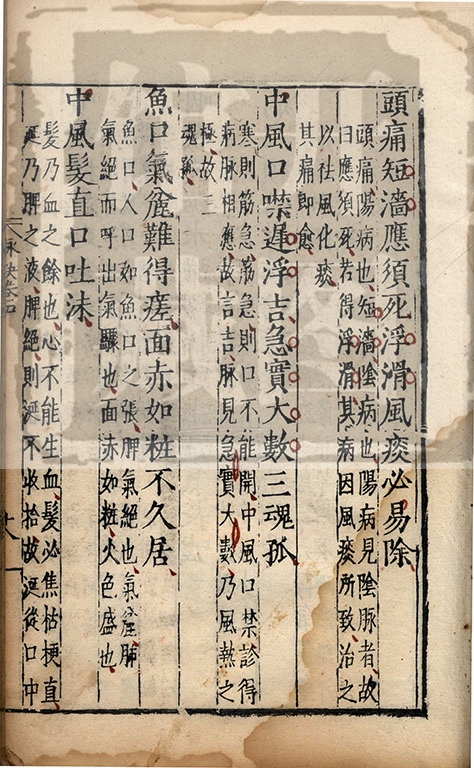 頭痛短濇應須死浮滑風痰必易除
頭痛陽病也短濇陰病也陽病見陰脉者故
曰應須死若得浮滑其病因風痰所致治之
以祛風化痰
其痛即愈
中風口噤遲浮吉急實大數三魂孤
寒則筋急筋急則口不能開中風口禁診得
病脉相應故言吉脉見急實大數乃風熱之
極故三
魂孤
魚口氣麄難得瘥面赤如粧不久居
魚口人口如魚口之張脾氣絶也氣麄肺
氣絶而呼出氣驟也面赤如粧火色盛也
中風髮直口吐沫
髮乃血之餘也心不能生血髮必焦枯梗直
涎乃脾之液脾絶則涎不收拾故涎從口中
脉訣卷四